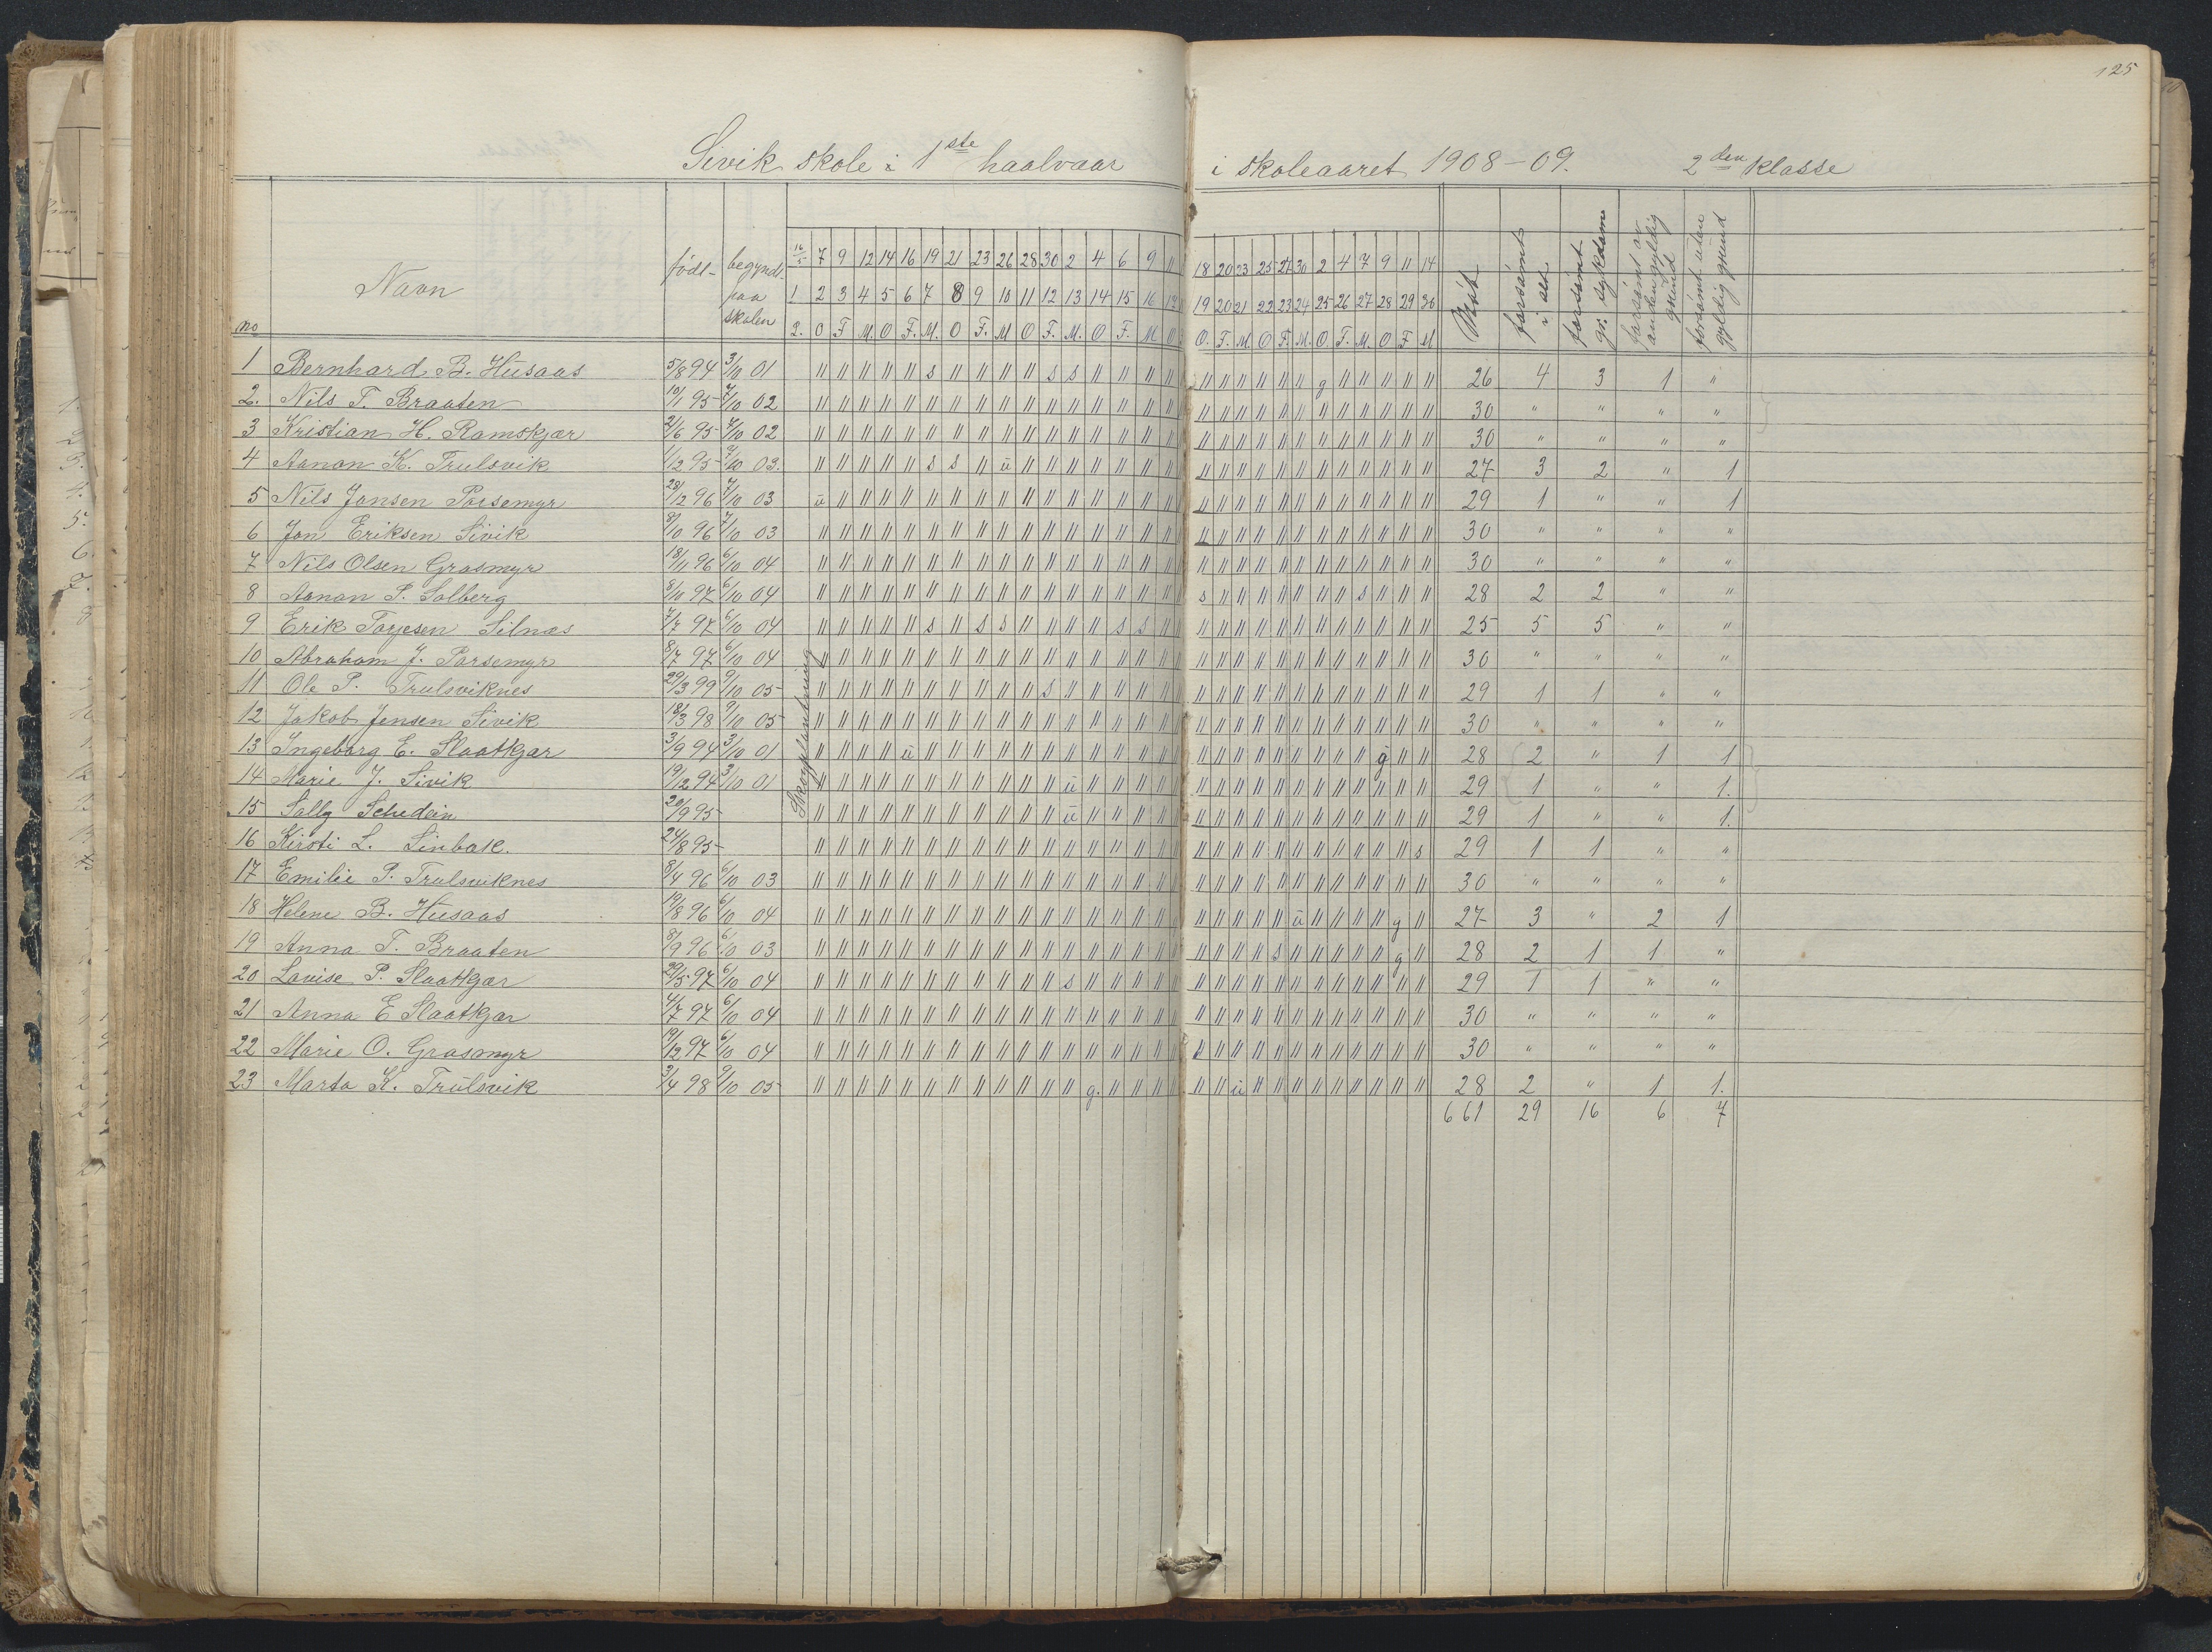 125
Sivik skole i 1ste haalvaar i skoleaaret 1908-09. 2den klasse
no Navn födt- begyndt paa skolen Möt forsömt i alt forsömt gr. sykdom forsömt av anden gyldig grund forsömt uten gyldig grund
16/5 7 9 12 14 16 19 21 23 26 28 30 2 4 6 9 11 18 20 23 25 27 30 2 4 7 9 11 14
1 2 3 4 5 6 7 8 9 10 11 12 13 14 15 16 19 20 21 22 23 24 25 26 27 28 29 30
2. O F M. O F. M. O F. M O F. M. O F. M O O. F. M. O F. M. O. F. M. O F M
Skogplantning
1 Bernhard B. Husaas 5/8 94 3/10 01 " " " " " s " " " " s s " " " " " " " " " " g " " " " " 26 4 3 1 "
2. Nils T. Braaten 10/1 95 7/10 02 " " " " " " " " " " " " " " " " " " " " " " " " " " " " 30 " " " "
3 Kristian H. Ramskjær 2/6 95 7/10 02 " " " " " " " " " " " " " " " " " " " " " " " " " " " " 30 " " " "
4 Aanon K. Trulsvik 1/12 95 9/10 03. " " " " " s s " u " " " " " " " " " " " " " " " " " " " 27 3 2 " 1
5 Nils Jansen Porsemyr 28/12 96 7/10 03 u " " " " " " " " " " " " " " " " " " " " " " " " " " " 29 1 " " 1
6 Jon Eriksen Sivik 8/10 96 7/10 03 " " " " " " " " " " " " " " " " " " " " " " " " " " " " 30 " " " "
7 Nils Olsen Grasmyr 18/11 96 6/10 04 " " " " " " " " " " " " " " " " " " " " " " " " " " " " 30 " " " "
8 Aanon P. Solberg 8/10 97 6/10 04 " " " " " " " " " " " " " " " " s " " " " " " " s " " " 28 2 2 " "
9 Erik Torjesen Silnæs 7/7 97 6/10 04 " " " " " s " s s " " " " s s " " " " " " " " " " " " " 25 5 5 " "
10 Abraham J. Porsemyr 8/7 97 6/10 04 " " " " " " " " " " " " " " " " " " " " " " " " " " " " 30 " " " "
11 Ole P. Trulsviknes 29/3 99 9/10 05 " " " " " " " " " " s " " " " " " " " " " " " " " " " " 29 1 1 " "
12 Jakob Jensen Sivik 18/3 98 9/10 05 " " " " " " " " " " " " " " " " " " " " " " " " " " " " 30 " " " "
13 Ingeborg E. Slaatkjær 3/9 94 3/10 01 " " " " u " " " " " " " " " " " " " " " " " " " " g " " 28 2 " 1 1
14 Marie J. Sivik 19/12 94 3/10 01 " " " " " " " " " " " u " " " " " " " " " " " " " " " " 29 1 " " 1.
15 Sally Schedin 20/9 95 " " " " " " " " " " " u " " " " " " " " " " " " " " " " 29 1 " " 1.
16 Kirsti L. Sinbak. 24/8 95 " " " " " " " " " " " " " " " " " " " " " " " " " " " s 29 1 1 " "
17 Emilie P. Trulsviknes 8/4 96 6/10 03 " " " " " " " " " " " " " " " " " " " " " " " " " " " " 30 " " " "
18 Helene B. Husaas 19/8 96 6/10 04 " " " " " " " " " " " " " " " " " " " " " u " " " " g " 27 3 " 2 1
19 Anna T. Braaten 8/9 96 6/10 03 " " " " " " " " " " " " " " " " " " " " s " " " " " g " 28 2 1 1 "
20 Lovise P. Slaatkjær 29/5 97 6/10 04 " " " " " " " " " " " s " " " " " " " " " " " " " " " " 29 1 1 " "
21 Anna E Slaatkjær 4/7 97 6/10 04 " " " " " " " " " " " " " " " " " " " " " " " " " " " " 30 " " " "
22 Marie O. Grasmyr 19/12 97 6/10 04 " " " " " " " " " " " " " " " " " " " " " " " " " " " " 30 " " " "
23 Marta K. Trulsvik 3/4 98 9/10 05 " " " " " " " " " " " " g. " " " " " u " " " " " " " " " 28 2 " 1 1.
661 29 16 6 7